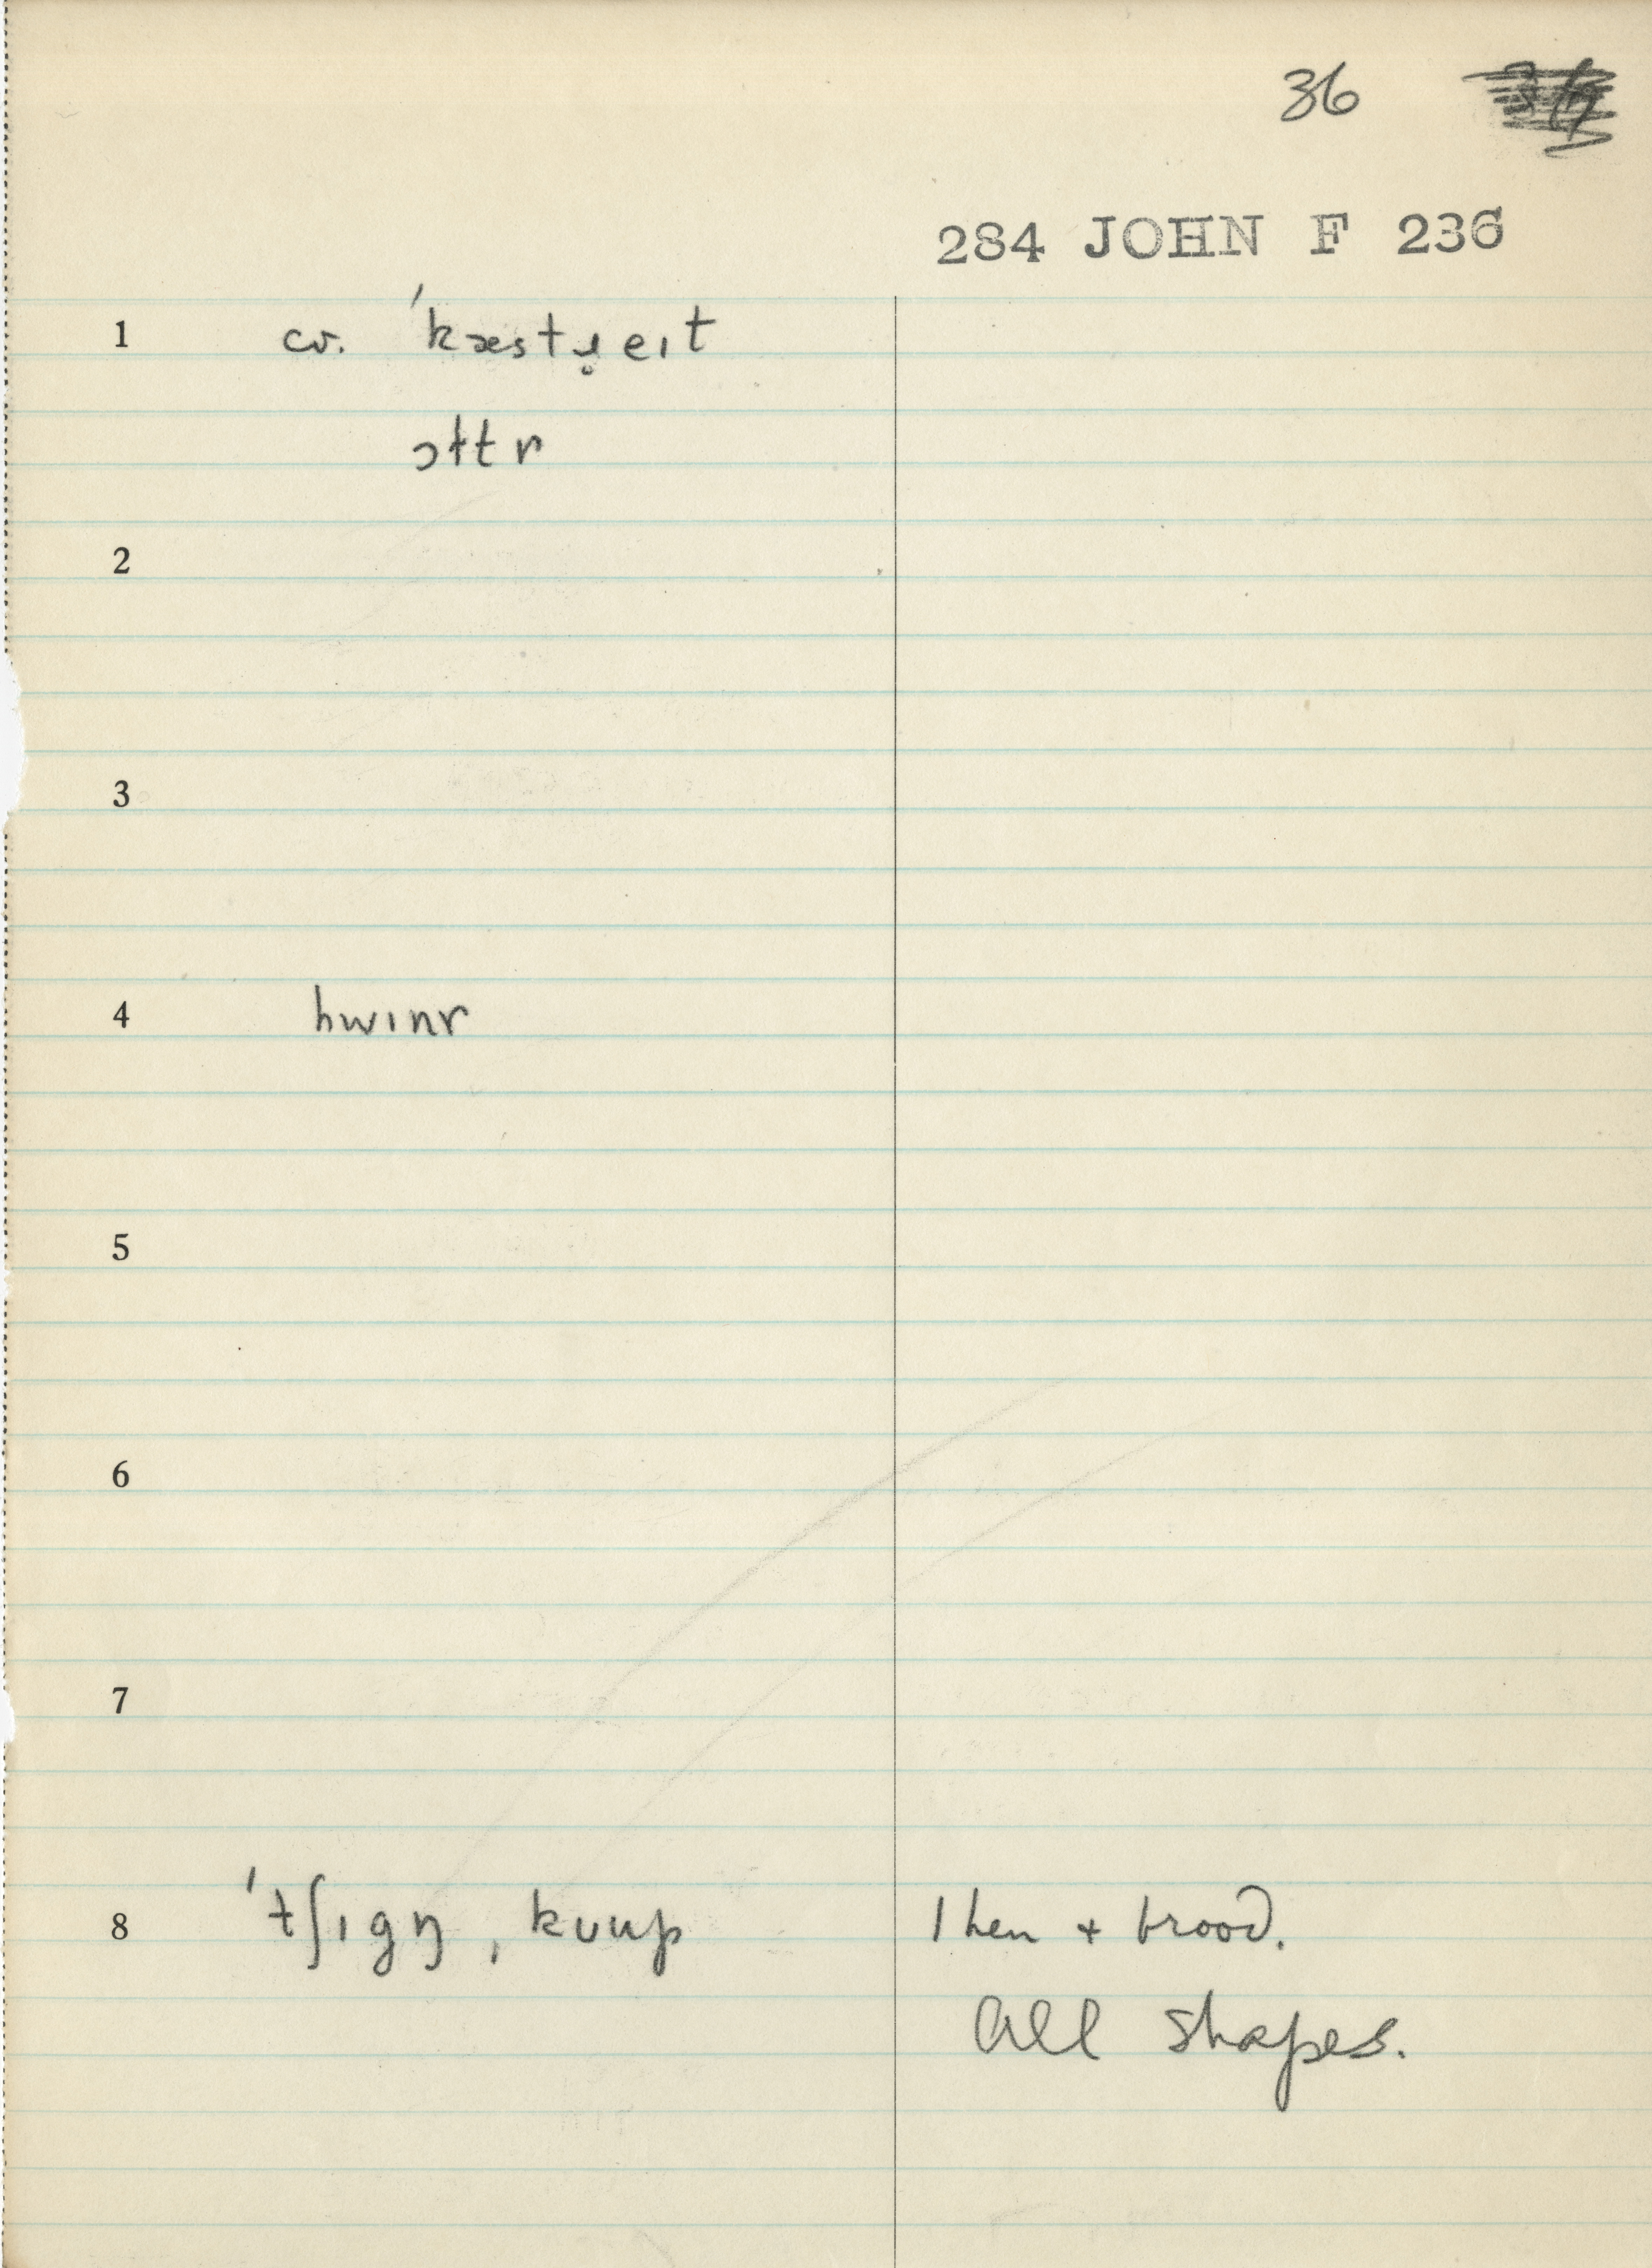 36
284 JOHN F 236
1 cv. ˈkæstɹ̥eɪt
ɔltr
2
3
4 hwɪnr
5
6
7
8 ˈtʃɪgŋ, kuup 1 hen + brood.
All shapes.